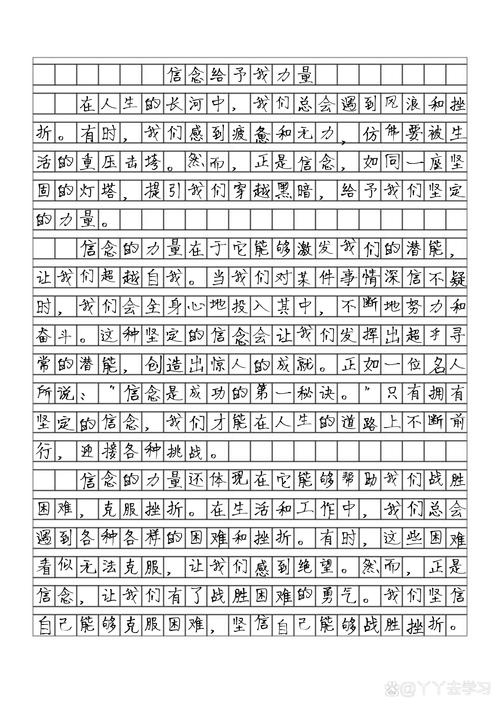 信念给予我力量
在人生的长河中，我们总会遇到风浪和挫
折。有时，我们感到疲惫和无力，仿佛要被生
活的重压击垮。然而，正是信念，如同一座坚
固的灯塔，提引我们穿越黑暗，给予我们坚定
的力量。
信念的力量在于它能够激发我们的潜能，
让我们超越自我。当我们对某件事情深信不疑
时，我们会全身心地投入其中，不断地努力和
奋斗。这种坚定的信念会让我们发挥出超乎寻
常的潜能，创造出惊人的成就。正如一位名人
所说：“信念是成功的第一秘诀。”只有拥有
坚定的信念，我们才能在人生的道路上不断前
行，迎接各种挑战。
信念的力量还体现在它能够帮助我们战胜
困难，克服挫折。在生活和工作中，我们总会
遇到各种各样的困难和挫折。有时，这些困难
看似无法克服，让我们感到绝望。然而，正是
信念，让我们有了战胜困难的勇气。我们坚信
自己能够克服困难，坚信自己能够战胜挫折。
@丫丫去学习